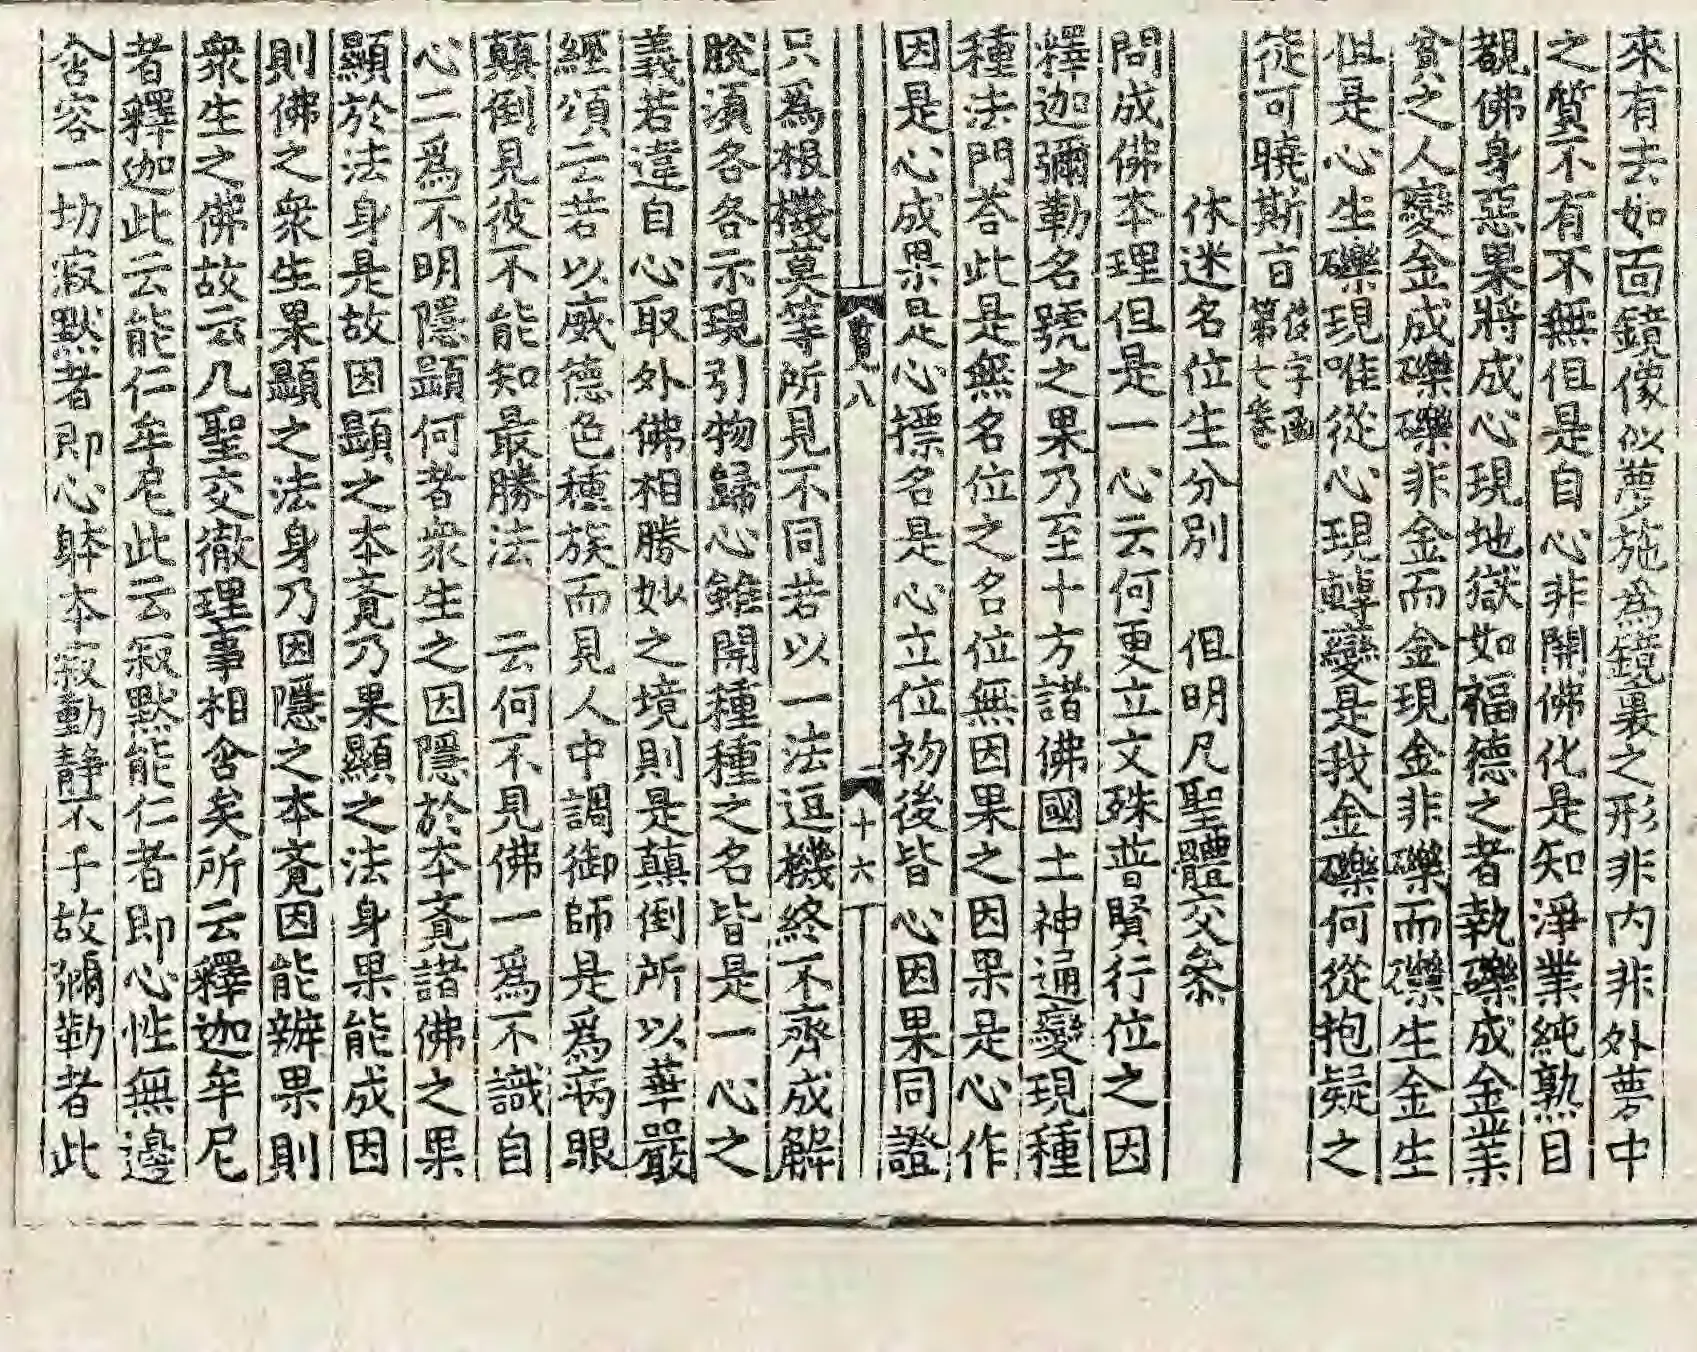 來有去如面鏡像似夢施爲鏡裏之形非内非外夢中
之質不有不無但是自心非關佛化是知淨業純熟目
覩佛身惡果將成心現地獄如福德之者執礫成金業
貧之人變金成礫礫非金而金現金非礫而礫生金生
但是心生礫現唯從心現轉變是我金礫何從抱疑之
徒可曉斯旨
後字函
第七卷
休迷名位生分別　但明凡聖體交叅
問成佛本理但是一心云何更立文殊普賢行位之因
釋迦彌勒名號之果乃至十方諸佛國土神通變現種
種法門荅此是無名位之名位無因果之因果是心作
因是心成果是心摽名是心立位初後皆心因果同證
覽八
十六
只爲根機莫等所見不同若以一法逗機終不齊成解
脫湏各各示現引物歸心雖開種種之名皆是一心之
義若違自心取外佛相勝妙之境則是顛倒所以華嚴
經頌云若以威德色種族而見人中調御師是爲病眼
顛倒見彼不能知最勝法　云何不見佛一爲不識自
心二爲不明隱顯何者衆生之因隱於本覔諸佛之果
顯於法身是故因顯之本覔乃果顯之法身果能成因
則佛之衆生果顯之法身乃因隱之本覔因能辦果則
衆生之佛故云凡聖交徹理事相含矣所云釋迦牟尼
者釋迦此云能仁牟尼此云寂默能仁者即心性無邊
含容一切寂黙者即心躰本寂動靜不干故彌勒者此